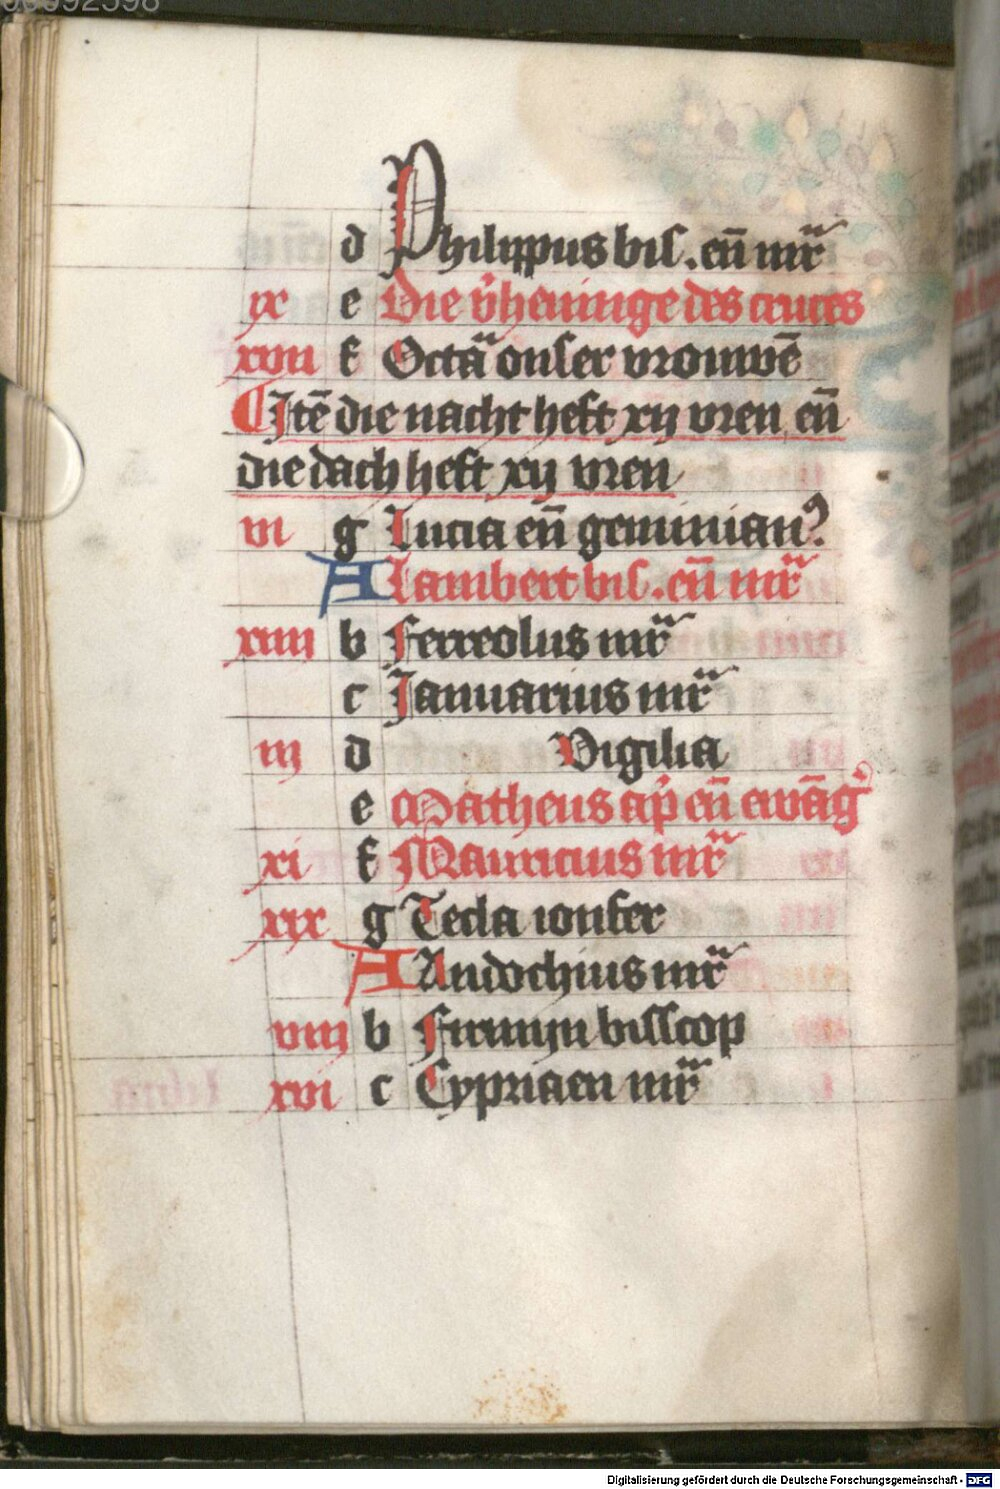 d Philippus bis. en̄ mr̄
ix e Die v̉heuinge des cruces
xvii f Octā onser vrouwē
Itē die nacht heft xij vren en̄
die dach heft xij vren
vi g Lucia en̄ geminian?
A Lambert bis. en̄ mr̄
xiiii b Ferreolus mr̄
c Januarius mr̄
iij d Vigilia
e Matheus ap̉ en̄ ewāg̉
xi f Mauricius mr̄
xix g Tecla ionfer
A Andochius mr̄
viij b Firmijn bisscop
xvi c Cypriaen mr̄
Digitalisierung gefördert durch die Deutsche Forschungsgemeinschaft - DFG